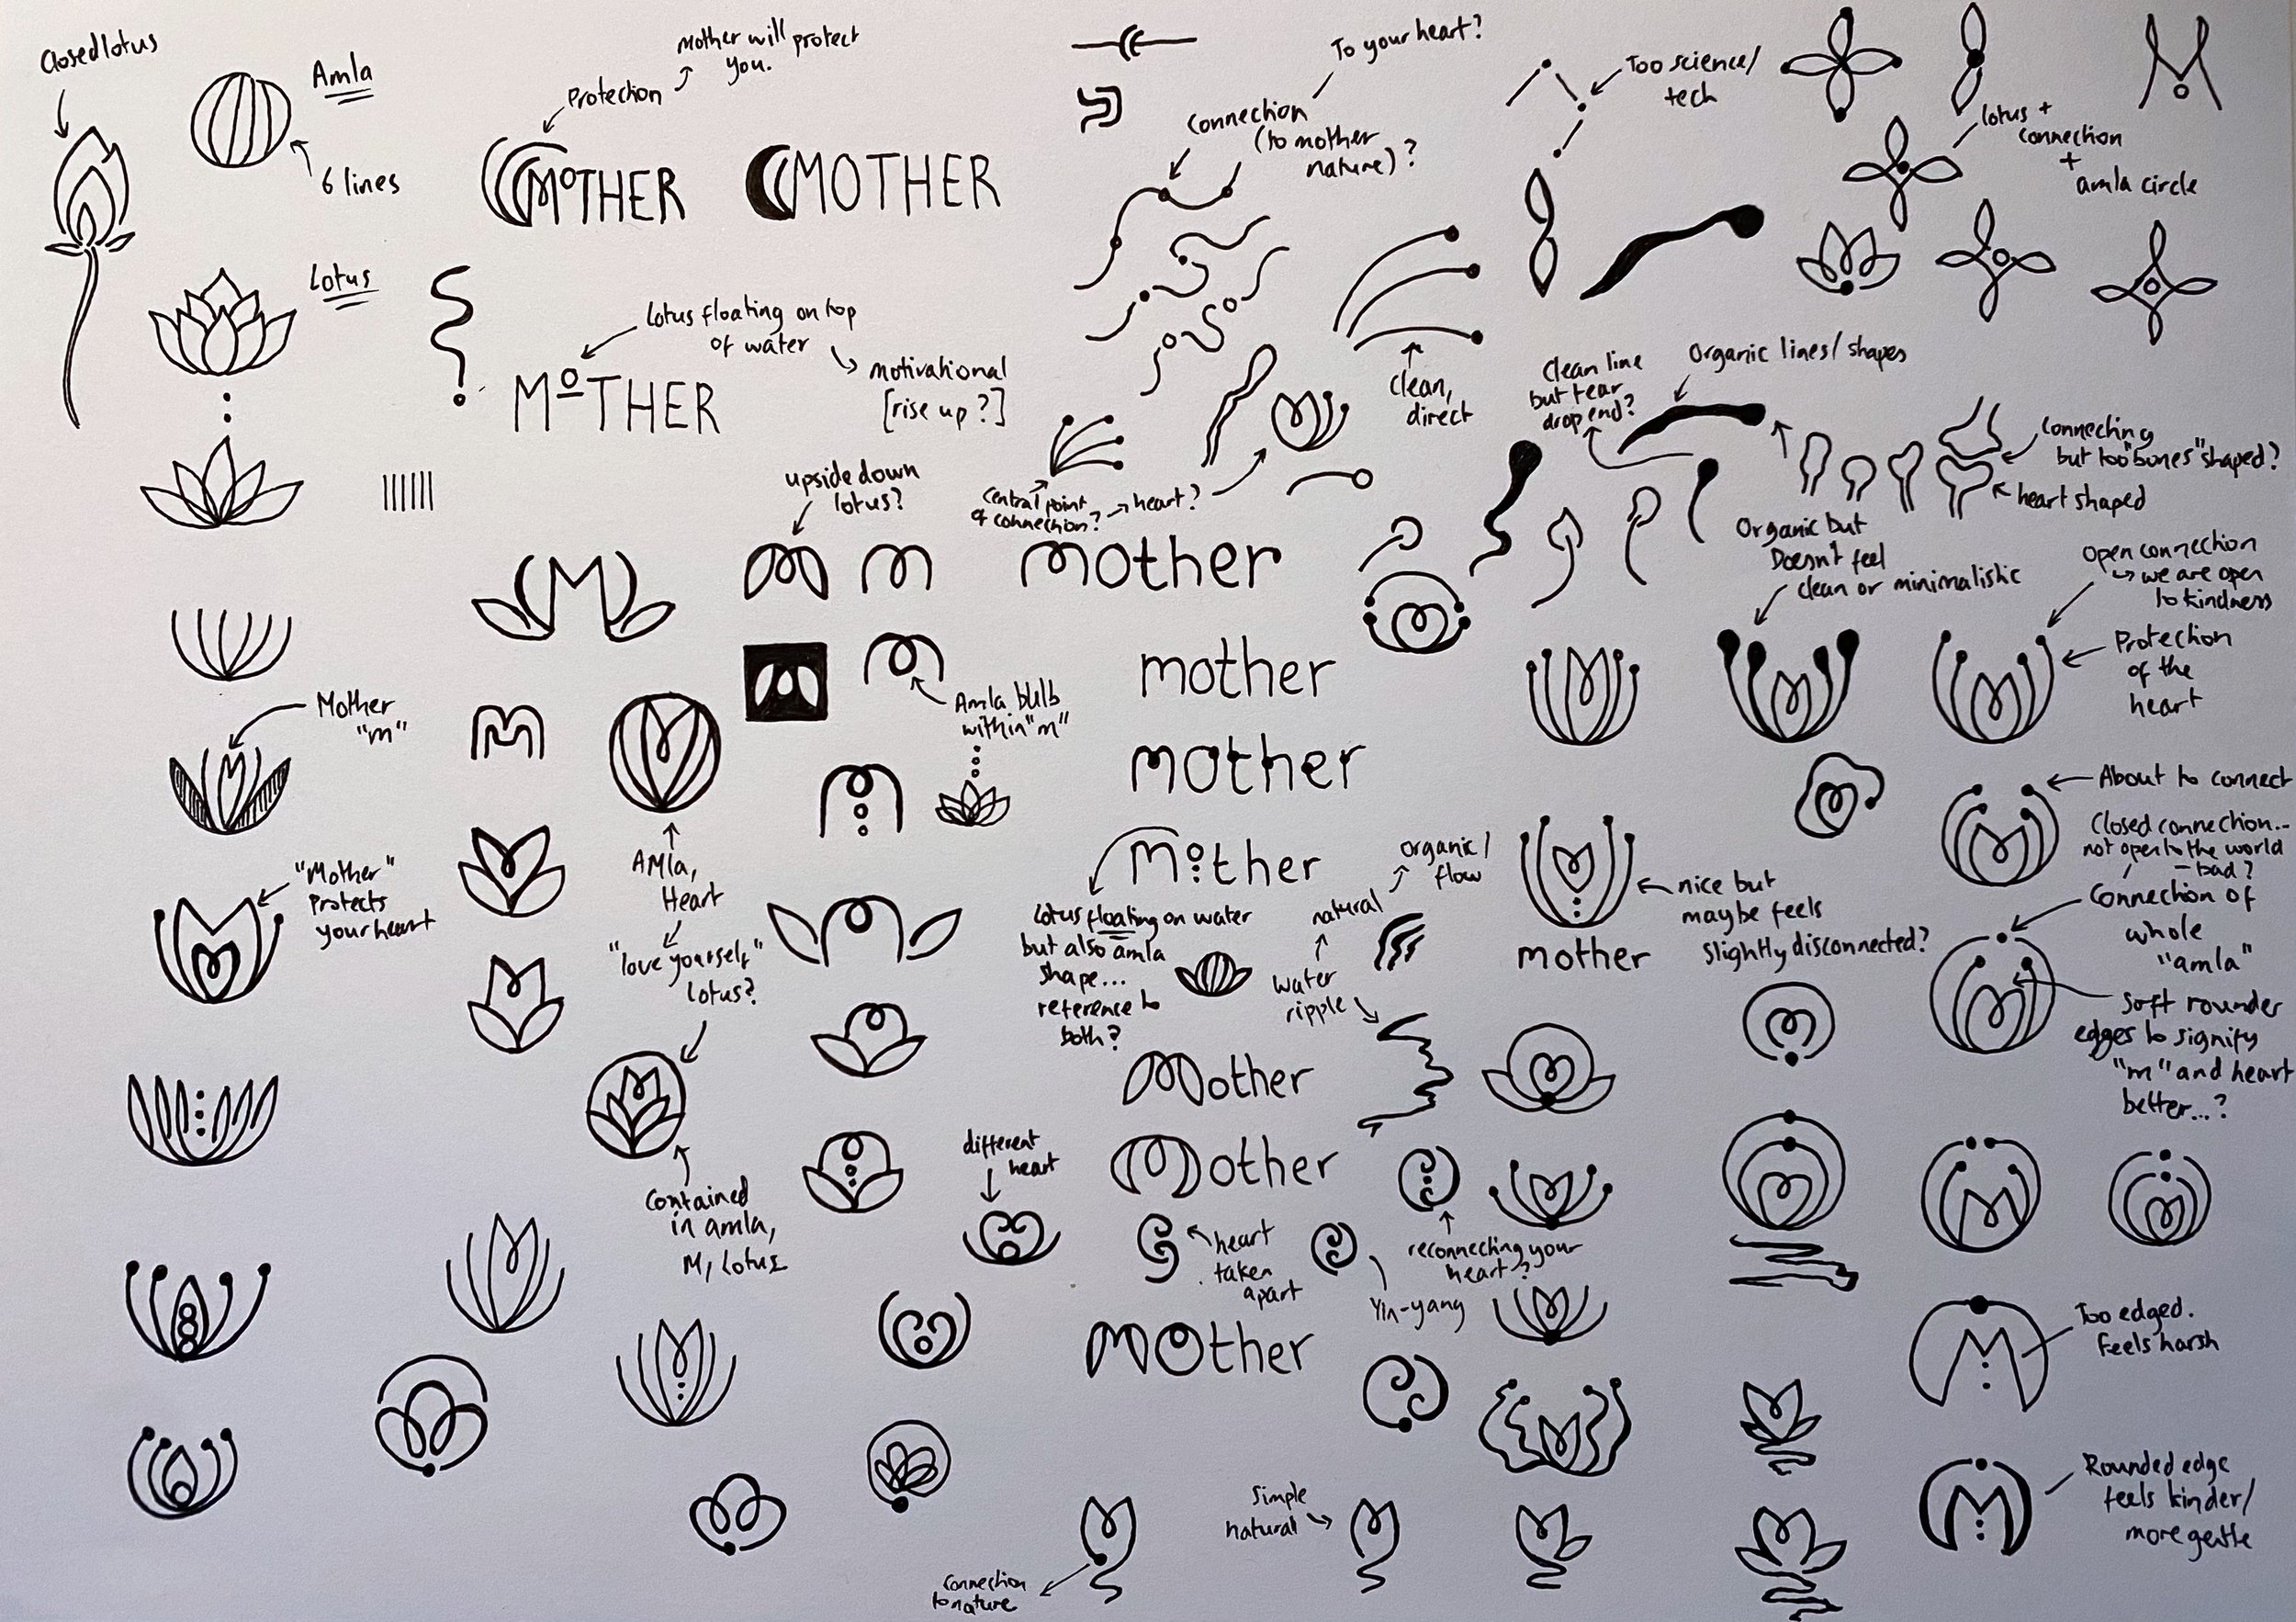 Closed lotus
Amla
6 lines
Lotus
Mother will protect
you.
Protection
MOTHER
MOTHER
Lotus floating on top
of water
motivational
[rise up?]
MOTHER
To your heart?
Connection
(to mother
nature)?
Too science/
tech
M
lotus +
connection
+
amla circle
Clean,
direct
Clean line
but tear
drop end?
Organic lines/shapes
Connecting
but too "bones" shaped?
heart shaped
Central point
of connection?
heart?
Organic but
Doesn't feel
clean or minimalistic
Open connection
we are open
to kindness
Protection
of the
heart
upside down
lotus?
m
mother
mother
mother
Mother
"m"
Amla bulb
within "m"
m
AMla,
Heart
"love yourself"
lotus?
"Mother"
Protects
your heart
Contained
in amla,
M, Lotus
different
heart
mother
Lotus floating on water
but also amla
shape...
reference to
both?
Organic/
flow
natural
water
ripple
mother
nice but
maybe feels
slightly disconnected?
About to connect
Closed connection...
not open to the world
- bad?
Connection of
whole
"amla"
Soft rounder
edges to signify
"m" and heart
better...?
Mother
Mother
heart
taken
apart
Yin-yang
reconnecting your
heart?
MOther
Too edged.
Feels harsh
Rounded edge
feels kinder/
more gentle
Simple
natural
Connection
to nature